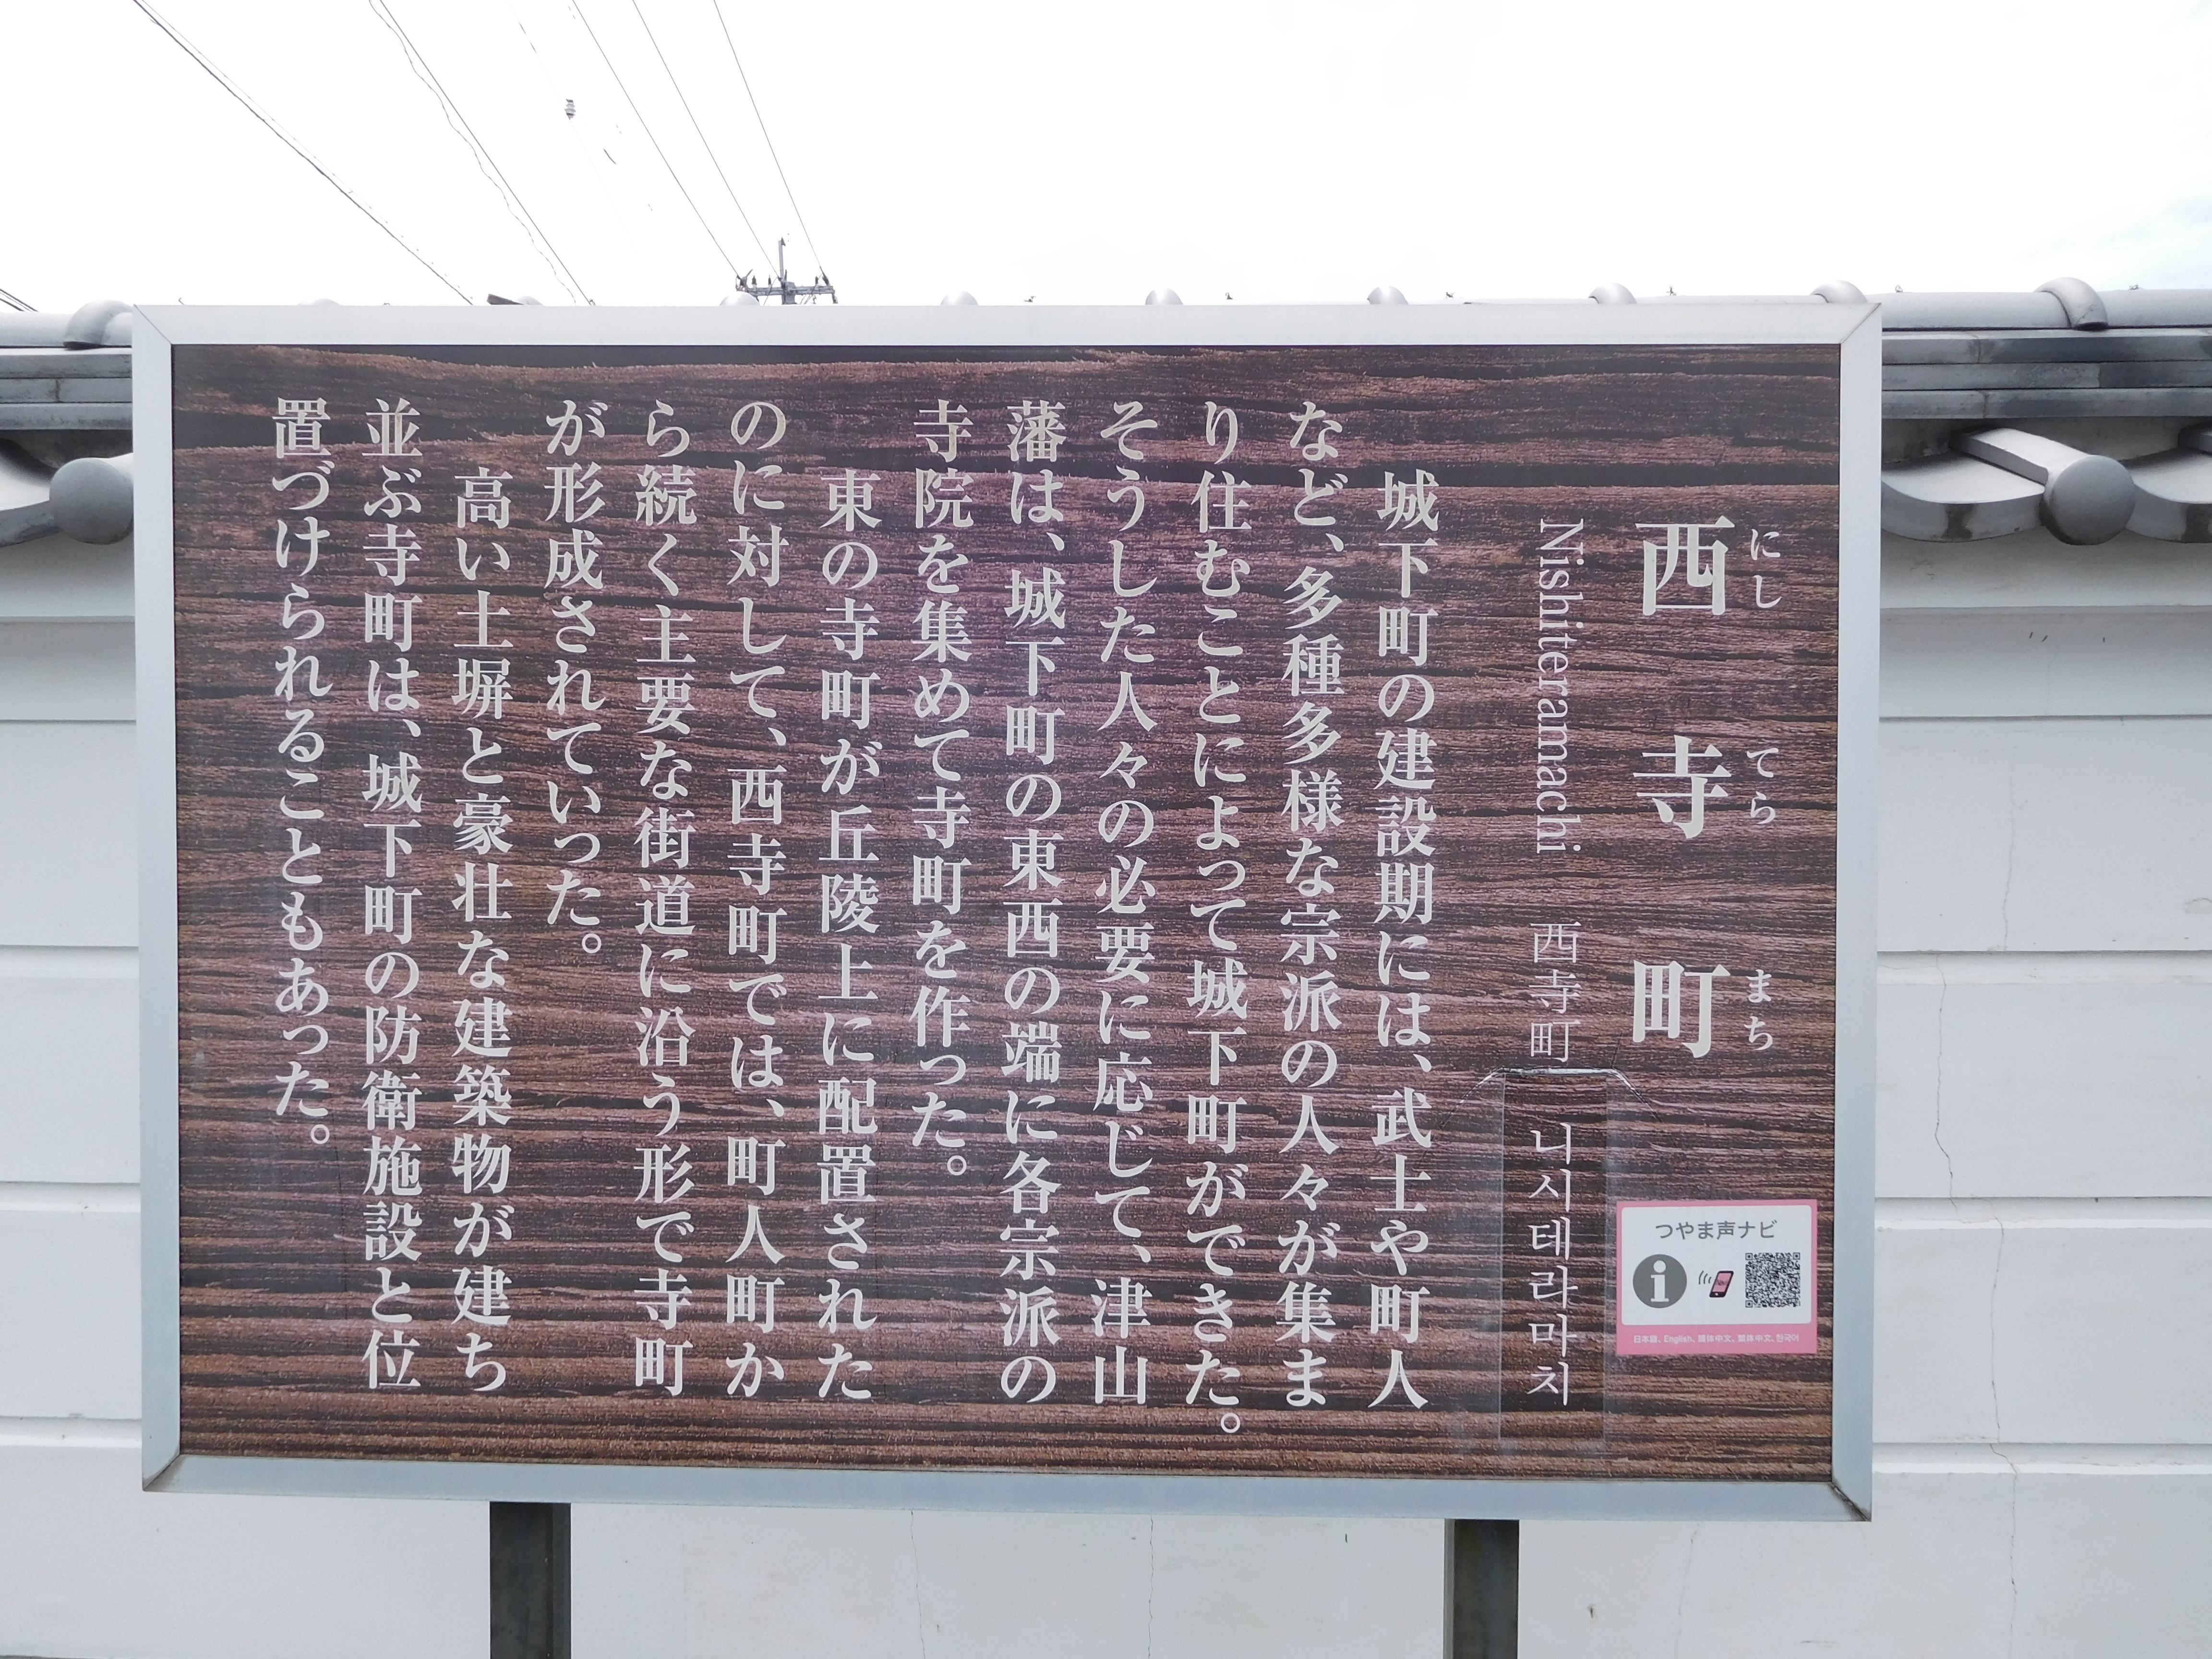 にし てら まち
西寺町
Nishiteramachi 西寺町 니시테라마치
城下町の建設期には、武士や町人
など、多種多様な宗派の人々が集ま
り住むことによって城下町ができた。
そうした人々の必要に応じて、津山
藩は、城下町の東西の端に各宗派の
寺院を集めて寺町を作った。
東の寺町が丘陵上に配置された
のに対して、西寺町では、町人町か
ら続く主要な街道に沿う形で寺町
が形成されていった。
高い土塀と豪壮な建築物が建ち
並ぶ寺町は、城下町の防衛施設と位
置づけられることもあった。
つやま声ナビ
i
日本語、English、簡体中文、繁体中文、한국어